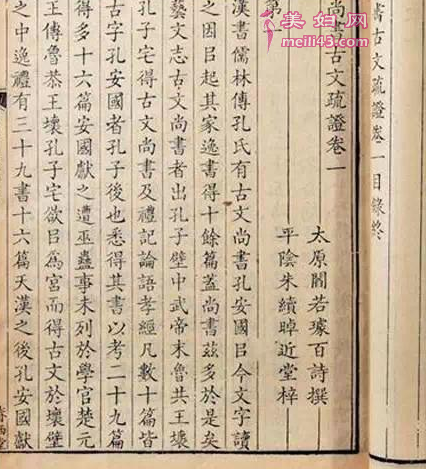 美妇网
meili43.com
書古文疏證卷一目錄終
尚書古文疏證卷一
太原閻若璩百詩撰
平陰朱續晫近堂梓
第
漢書儒林傳孔氏有古文尚書孔安國㠯今文字讀
之因㠯起其家逸書得十餘篇蓋尚書茲多於是矣
藝文志古文尚書者出孔子壁中武帝末魯共王壞
孔子宅得古文尚書及禮記論語孝經凡數十篇皆
古字孔安國者孔子後也悉得其書以考二十九篇
得多十六篇安國獻之遭巫蠱事未列於學官楚元
王傳魯恭王壞孔子宅欲㠯為宮而得古文於壞壁
之中逸禮有三十九書十六篇天漢之後孔安國獻